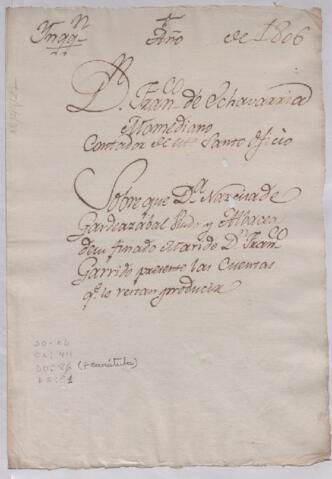 Ynqq.n Año de 1806
D.n Fran.co de Echavarria
Mamediano
Contador de este Santo Oficio
Sobre que D.a Narcisa de
Gardeazábal Viuda y Albacea
de su finado Marido D.n Fran.co
Garrido presente las Cuentas
q.e le restan producir
(+ carátula)